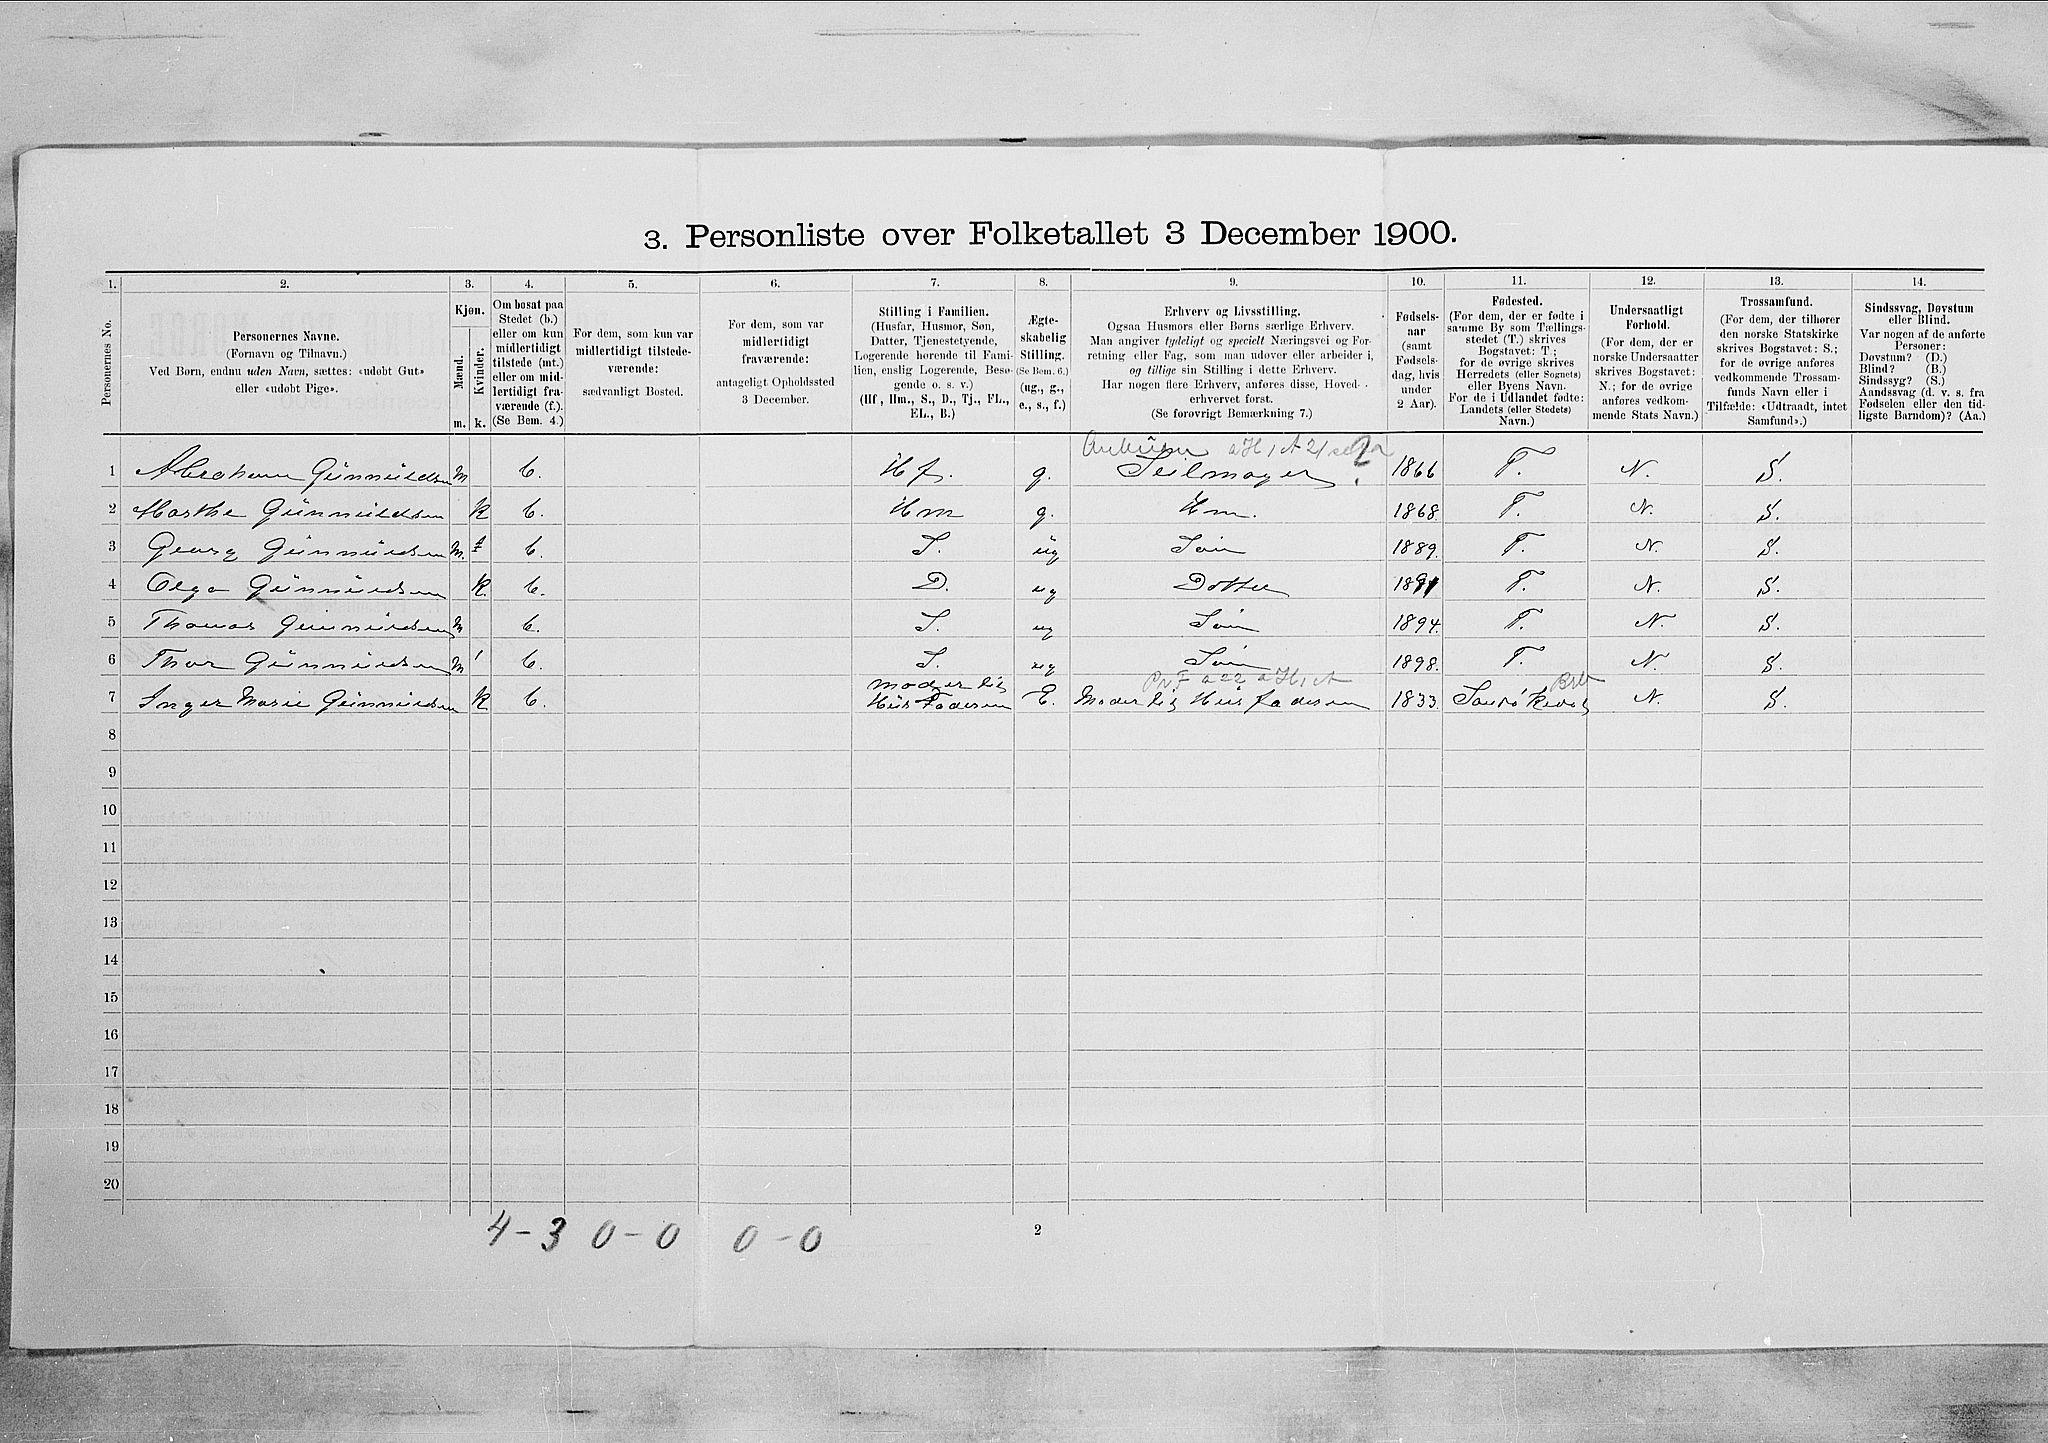 3. Personliste over Folketallet 3 December 1900.
1. 2. 3. 4. 5. 6. 7. 8. 9. 10. 11. 12. 13. 14.
Personernes No.
Personernes Navne.
(Fornavn og Tilnavn.)
Ved Børn, endnu uden Navn, sættes: «udøbt Gut»
eller «udøbt Pige».
Kjøn.
Mænd.
Kvinder.
m. k.
Om bosat paa
Stedet (b.)
eller om kun
midlertidigt
tilstede (mt.)
eller om mid-
lertidigt fra-
værende (f.).
(Se Bem. 4.)
For dem, som kun var
midlertidigt tilstede-
værende:
sædvanligt Bosted.
For dem, som var
midlertidigt
fraværende:
antageligt Opholdssted
3 December.
Stilling i Familien.
(Husfar, Husmor, Søn,
Datter, Tjenestetyende,
Logerende hørende til Fami-
lien, enslig Logerende, Besø-
gende o. s. v.)
(Hf., Hm., S., D., Tj., FL.,
EL., B.)
Ægte-
skabelig
Stilling.
(Se Bem. 6.)
(ug., g.,
e., s., f.)
Erhverv og Livsstilling.
Ogsaa Husmors eller Børns særlige Erhverv.
Man angiver tydeligt og specielt Næringsvei og For-
retning eller Fag, som man udøver eller arbeider i,
og tillige sin Stilling i dette Erhverv.
Har nogen flere Erhverv, anføres disse, Hoved-
erhvervet først.
(Se forøvrigt Bemærkning 7.)
Fødsels-
aar
(samt
Fødsels-
dag, hvis
under
2 Aar).
Fødested.
(For dem, der er fødte i
samme By som Tællings-
stedet (T.) skrives
Bogstavet: T.;
for de øvrige skrives
Herredets (eller Sognets)
eller Byens Navn.
For de i Udlandet fødte:
Landets (eller Stedets)
Navn.)
Undersaatligt
Forhold.
(For dem, der er
norske Undersaatter
skrives Bogstavet:
N.; for de øvrige
anføres vedkom-
mende Stats Navn.)
Trossamfund.
(For dem, der tilhører
den norske Statskirke
skrives Bogstavet: S.;
for de øvrige anføres
vedkommende Trossam-
funds Navn eller i
Tilfælde: «Udtraadt, intet
Samfund».)
Sindssvag, Døvstum
eller Blind.
Var nogen af de anførte
Personer:
Døvstum? (D.)
Blind? (B.)
Sindssyg? (S.)
Aandssvag (d. v. s. fra
Fødselen eller den tid-
ligste Barndom)? (Aa.)
1 Abraham Gunnuldsen M b. Hf. g. Seilmager ? 1866 T. N. S.
2 Marthe Gunnuldsen K b. Hm g. Hm. 1868. T. N. S.
3 Georg Gunnuldsen M. b. S. ug Søn 1889. T. N. S.
4 Olga Gunnuldsen K. b. D. ug Dotter 1891 T. N. S.
5 Thomas Gunnuldsen M b. S. ug Søn 1894. T. N. S.
6 Thor Gunnuldsen M b. S. ug Søn 1898. T. N. S.
7 Inger Marie Gunnuldsen K b. moder til Hus Faderen E. Moder til Hus faderen 1833. N. S.
8
9
10
11
12
13
14
15
16
17
18
19
20
4-3 0-0 0-0
2